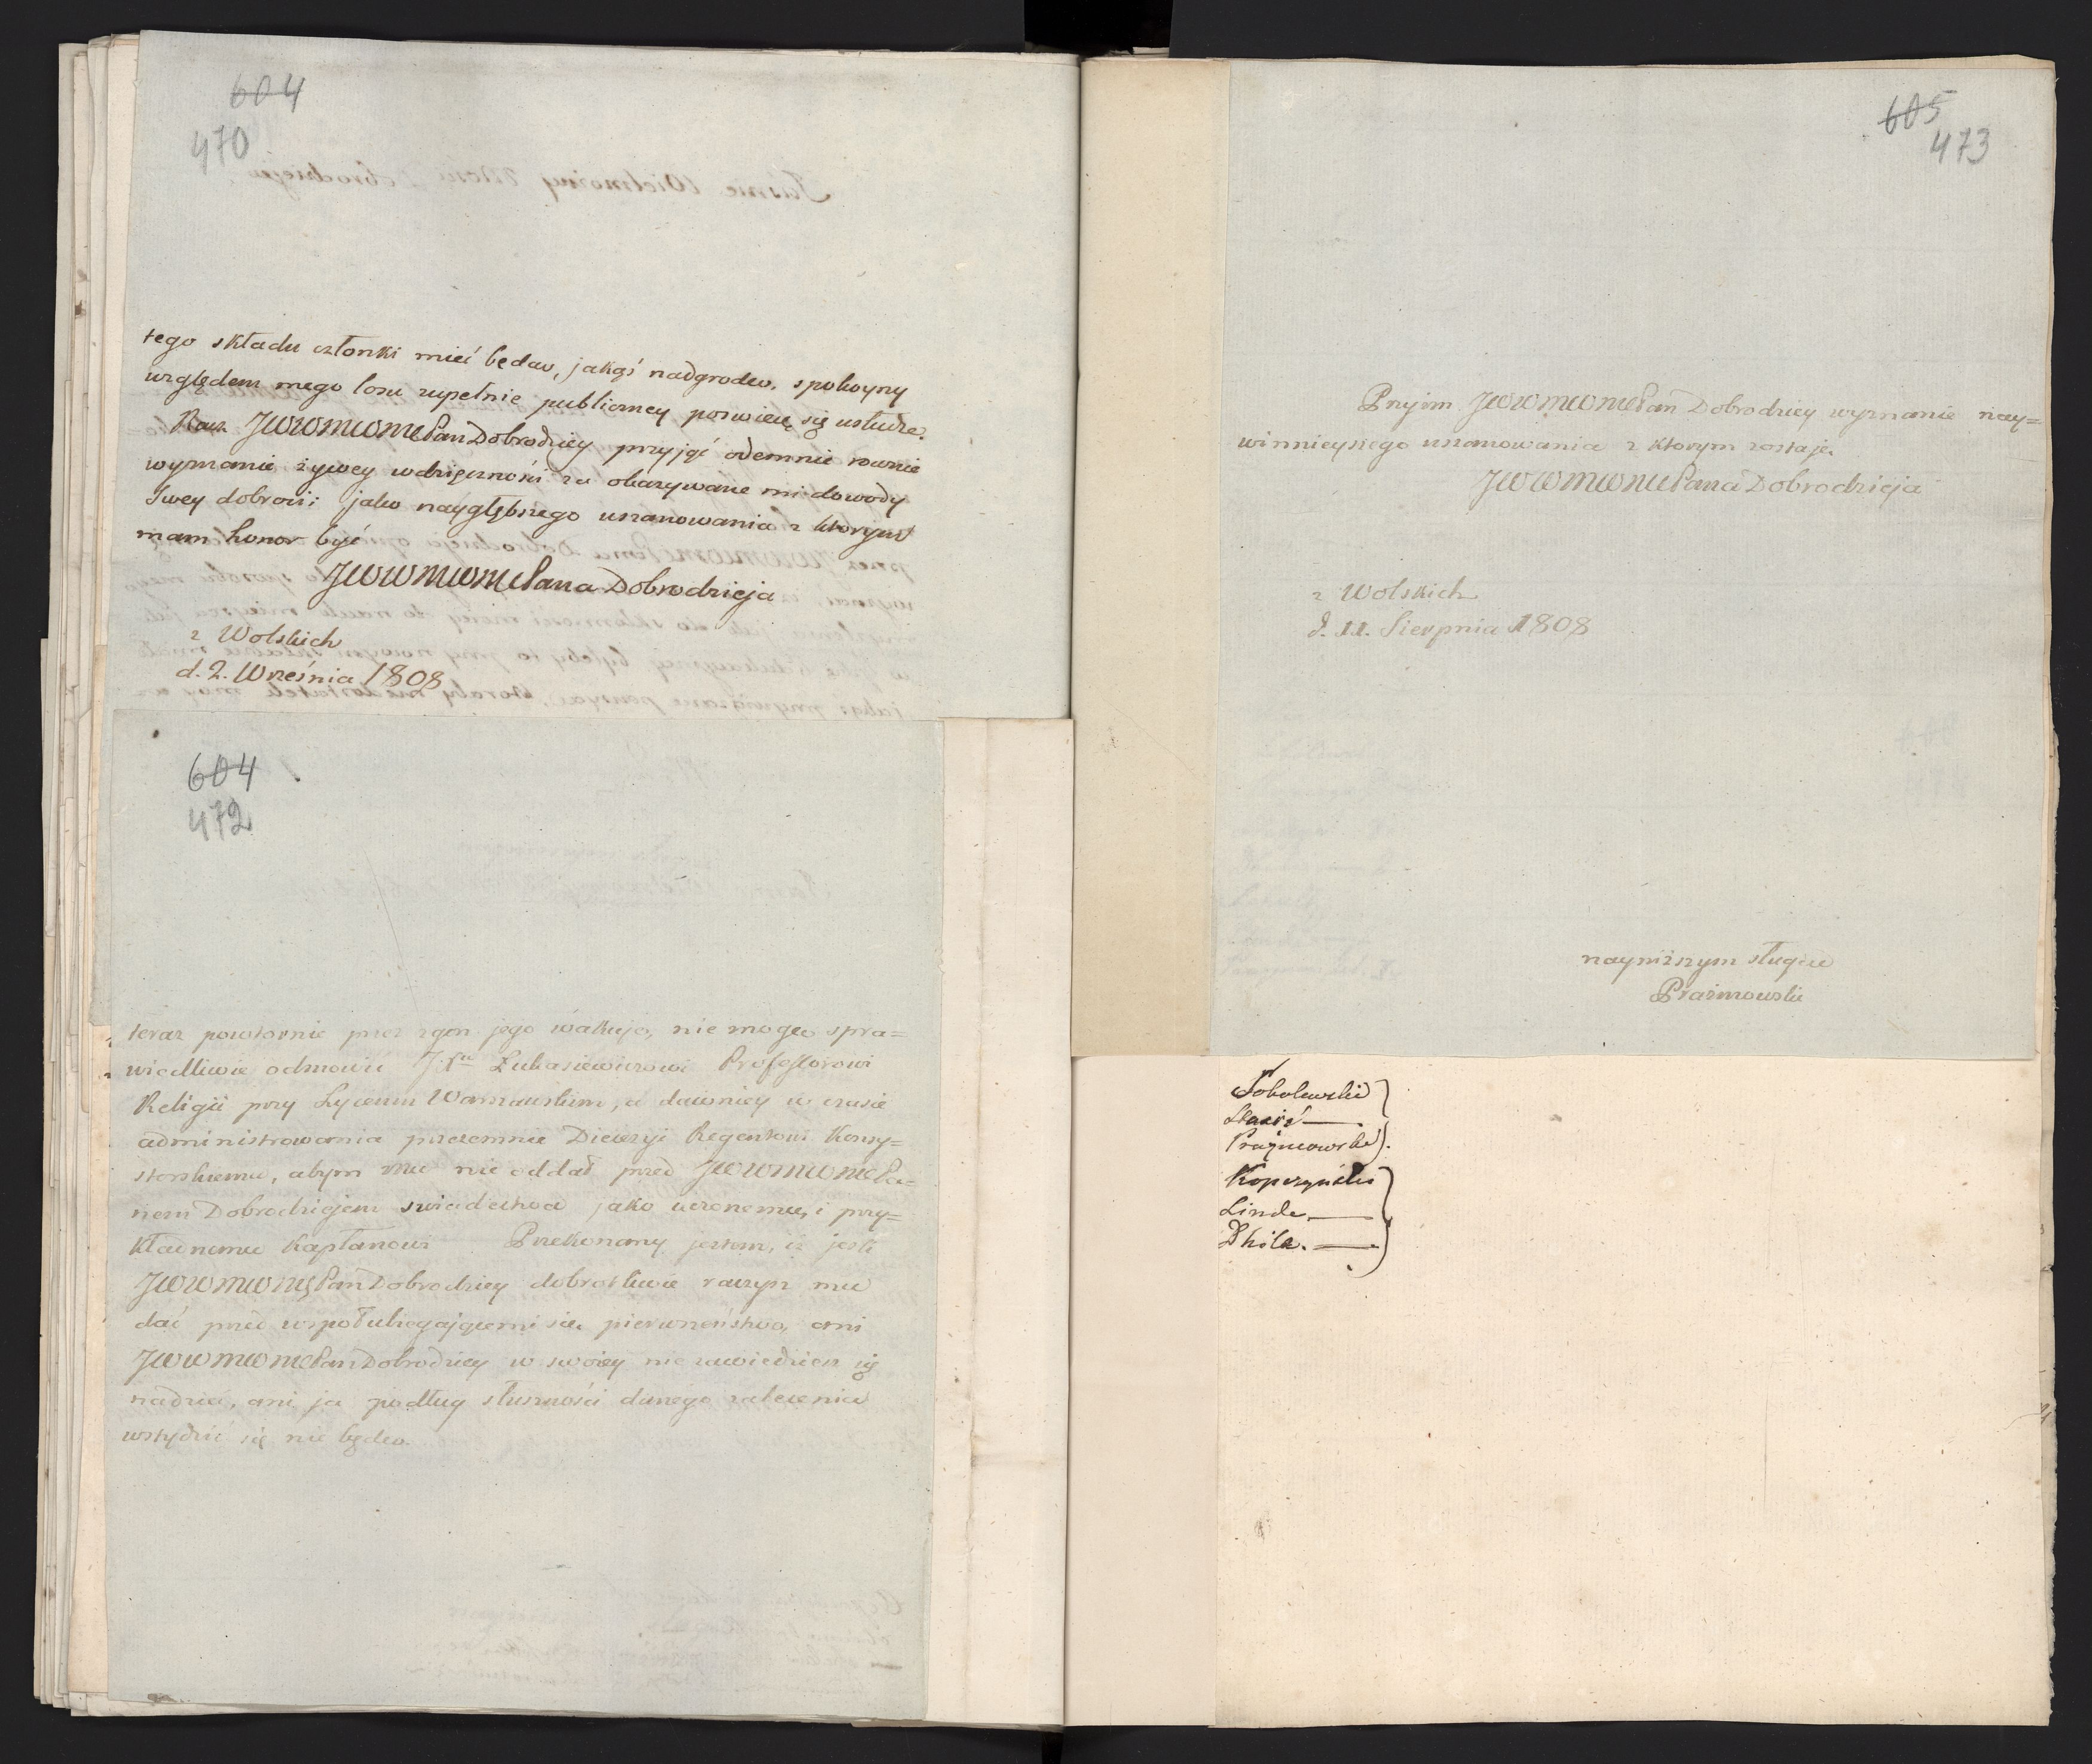 604
470
tego składu członki mieć będąc, jakąś nadgrodę. spokoyny
względem mego losu zupełnie publiczney poświęcę się usłudze.
Racz JWWMWMPan Dobrodziey przyjąć odemnie rownie
wyznanie żywey wdzięczności za okazywane mi dowody
Swey dobroci; jako naygłębszego uszanowania z ktorym
mam honor być
JWWMWMPana Dobrodzieja
z Wolskich
d. 2. Września 1808
604
472
teraz powtornie przez zgon jego wakuje, nie mogę spra=
wiedliwie odmowić Łukasiewiczowi Professorowi
Religii przy Lyceum Warszawskim, a dawniey w czasie
administrowania przezemnie Diecezyi Regentowi Konsy=
storskiemu, abym mu nie oddał przed JWWMWMPa=
nem Dobrodziejem swiadectwa jako uczonemu, i przy=
kładnemu kapłanowi Przekonany jestem, iż jeśli
JWWMWMPan Dobrodziey dobrotliwie raczysz mu
dać przed wspołubiegającemi się pierwszeństwo, ani
JWWMWMPan Dobrodziey w swoiey nie zawiedziesz się
nadziei, ani ja podług słuszności danego zalecenia
wstydzić się nie będę.
605
473
Przyim JWWMWMPan Dobrodziey wyznanie nay=
winnieyszego uszanowania z ktorym zostaję.
JWWMWMPana Dobrodzieja
z Wolskich
d. 11. Sierpnia 1808
nayniższym sługą
Prażmowski
Sobolewski
Staszic
Prażmowski
Kopczyński
Linde